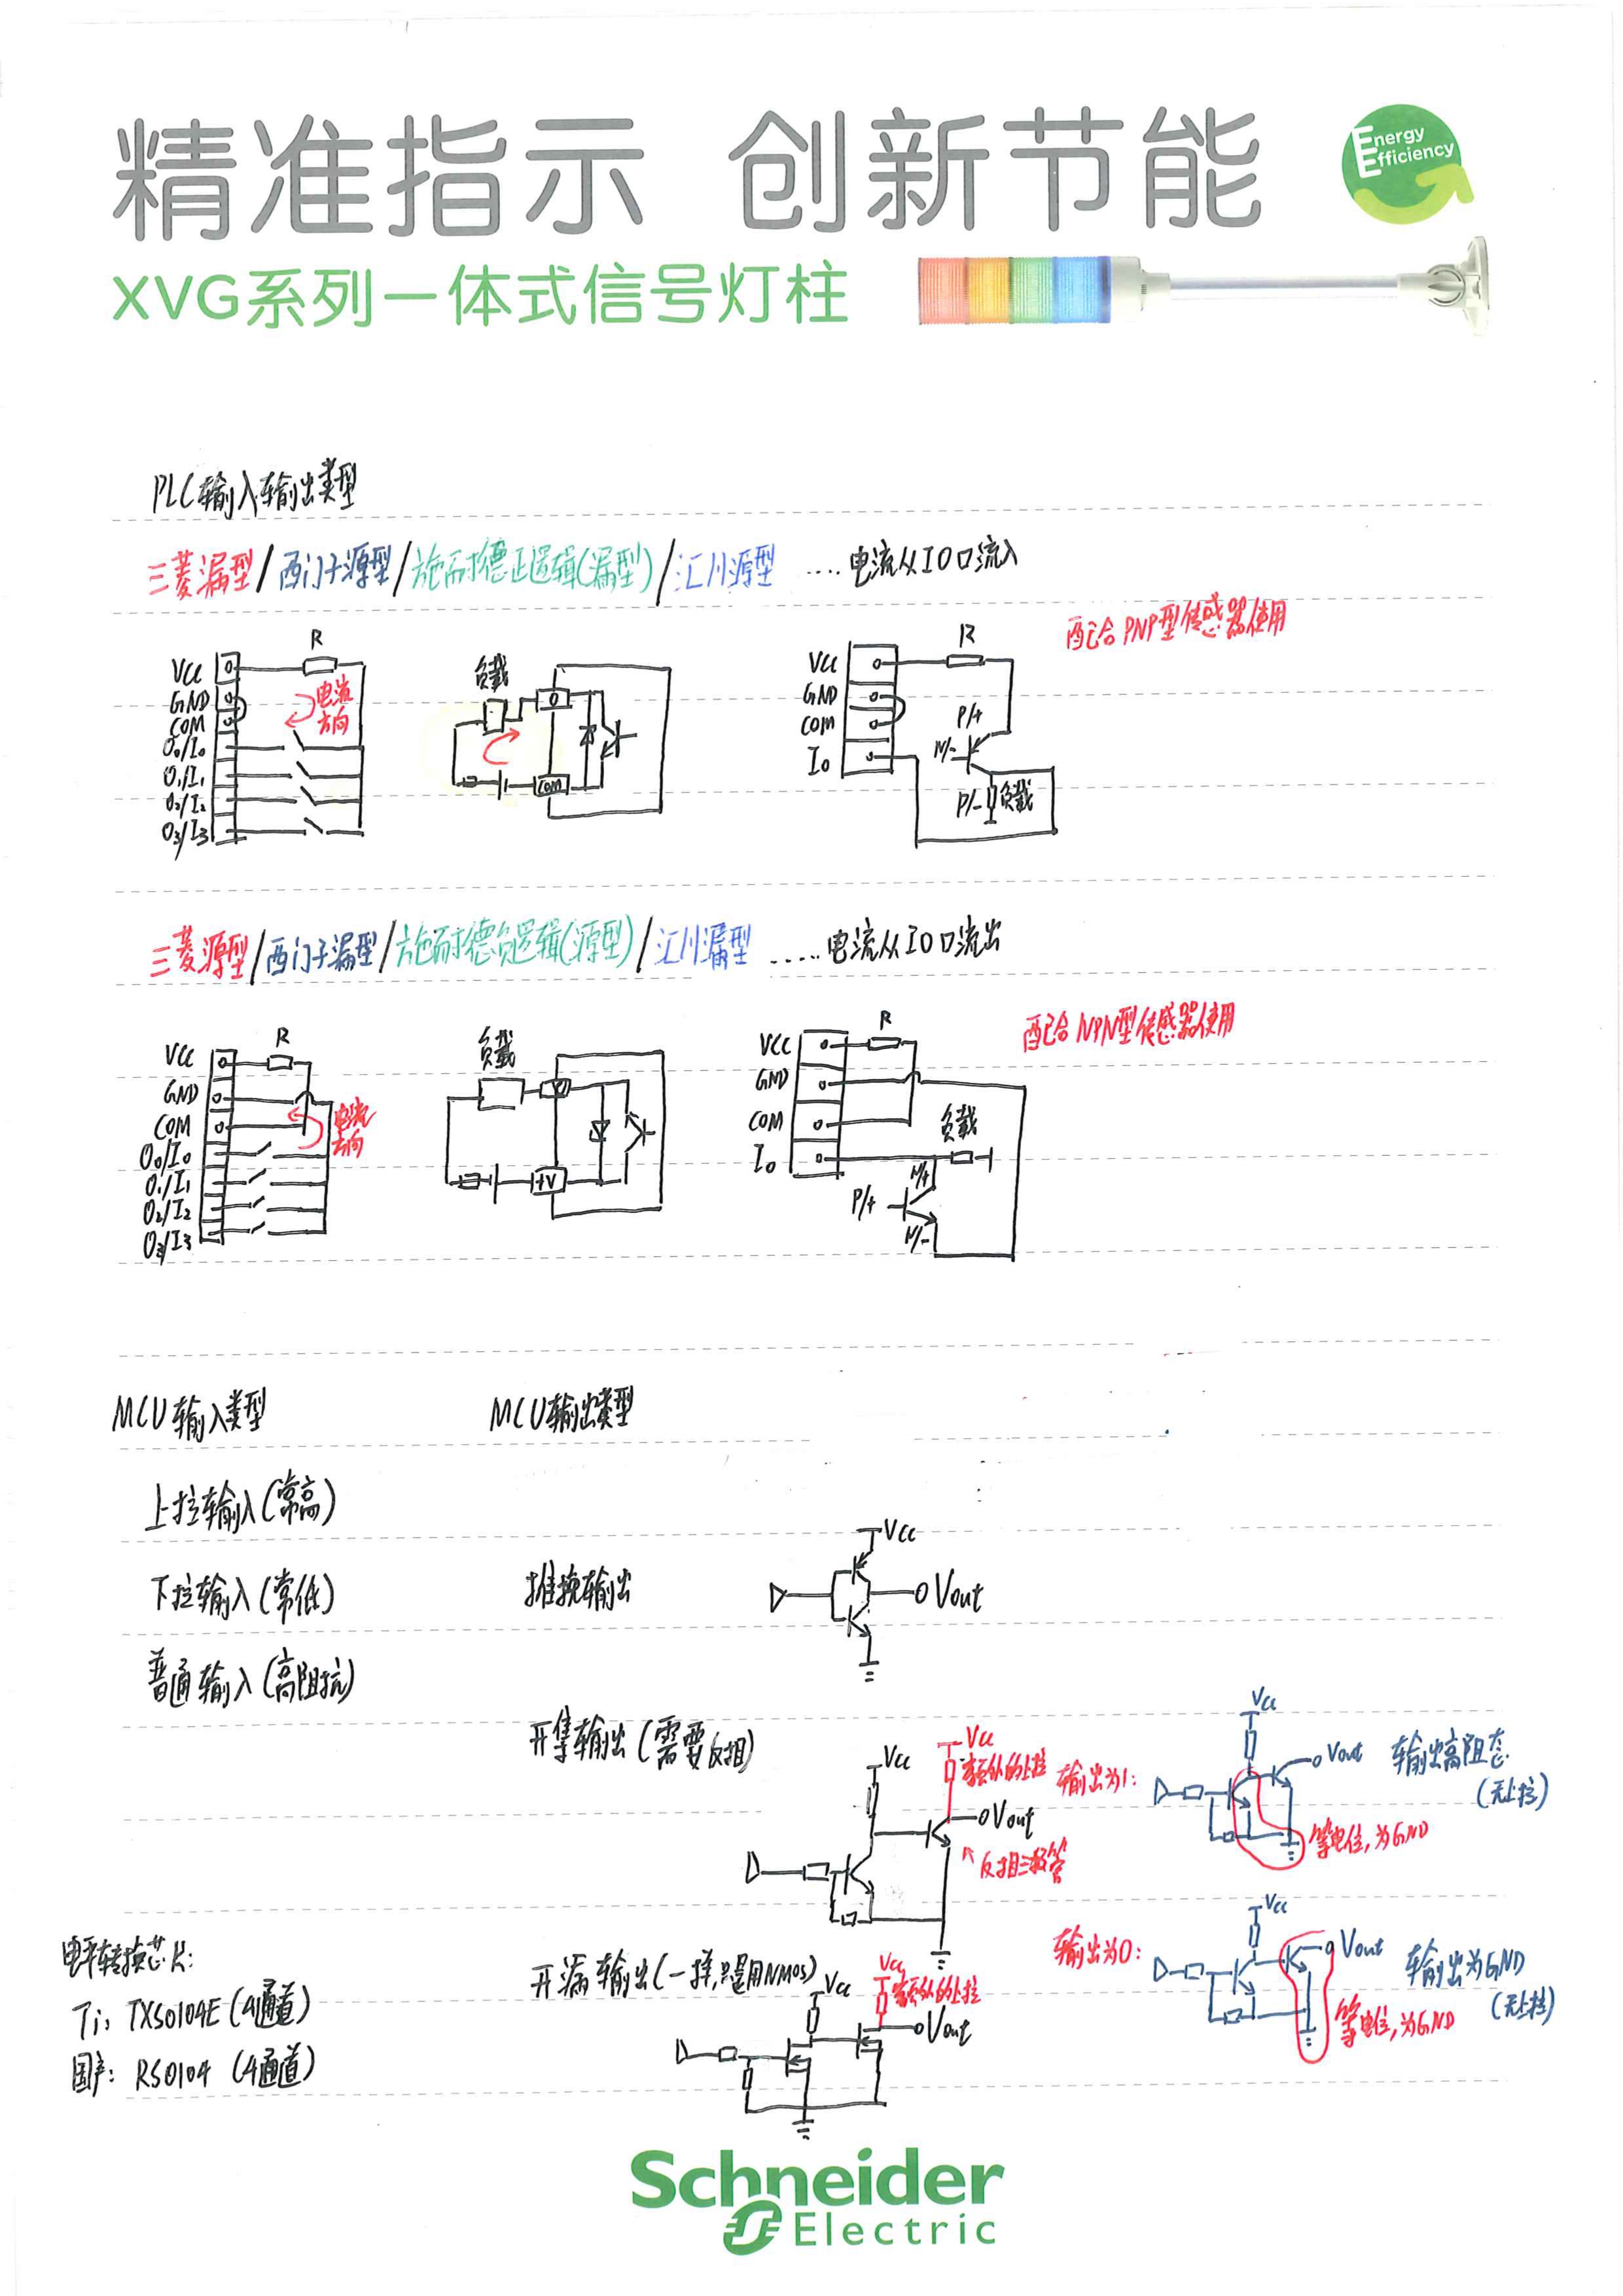 精准指示 创新节能
Energy
Efficiency
XVG系列一体式信号灯柱
PLC输入输出类型
三菱漏型/西门子源型/施耐德正逻辑(漏型)/汇川源型 ....电流从IO口流入
配合PNP型传感器使用
VCC
GND
COM
O0/I0
O1/I1
O2/I2
O3/I3
R
电流
方向
负载
O
COM
VCC
GND
COM
I0
R
P/+
N/-
P/-
负载
三菱源型/西门子漏型/施耐德负逻辑(源型)/汇川漏型 .....电流从IO口流出
配合NPN型传感器使用
VCC
GND
COM
O0/I0
O1/I1
O2/I2
O3/I3
R
电流
方向
负载
+V
VCC
GND
COM
I0
R
负载
N/+
P/+
N/-
MCU输入类型
MCU输出类型
上拉输入(常高)
下拉输入(常低)
普通输入(高阻抗)
推挽输出
VCC
Vout
开集输出(需要反相)
VCC
VCC
Vout
反相三极管
输出为1:
VCC
Vout
输出高阻态
(无上拉)
等电位,为GND
输出为0:
VCC
Vout
输出为GND
(无上拉)
等电位,为GND
开漏输出(一样,只是用NMOS)
VCC
VCC
Vout
电平转换芯片:
Ti: TXS0104E (4通道)
国产: RS0104 (4通道)
Schneider
Electric